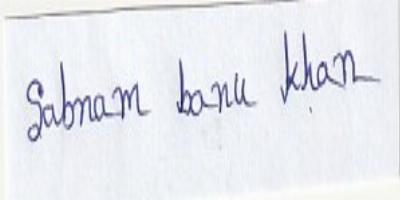 Sabnam banu khan